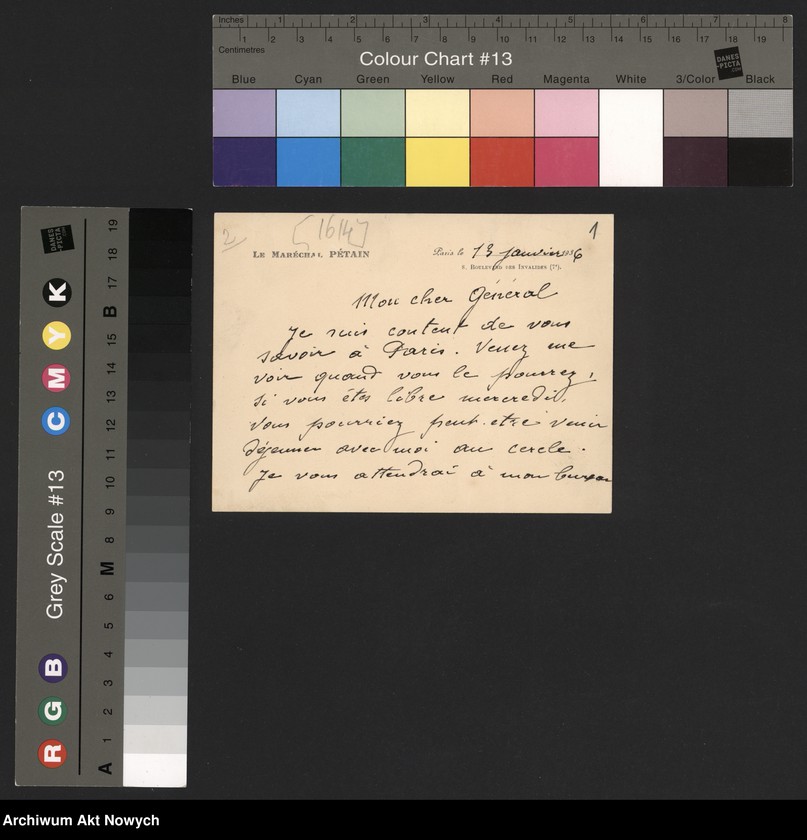 Inches 1 2 3 4 5 6 7 8
1 2 3 4 5 6 7 8 9 10 11 12 13 14 15 16 17 18 19
Centimetres
Colour Chart #13
DANES
-PICTA
.COM
Blue Cyan Green Yellow Red Magenta White 3/Color Black
2 [1614] 1
LE MARÉCHAL PÉTAIN
Paris le 13 janvier 1936
8. BOULEVARD DES INVALIDES (7e).
Mon cher Général
Je suis content de vous
savoir à Paris. Venez me
voir quand vous le pourrez,
si vous êtes libre mercredi,
vous pourriez peut-etre venir
déjeuner avec moi au cercle.
Je vous attendrai à mon bureau
Grey Scale #13
DANES
-PICTA
.COM
R G B C M Y K
A 1 2 3 4 5 6 M 8 9 10 11 12 13 14 15 B 17 18 19
Archiwum Akt Nowych